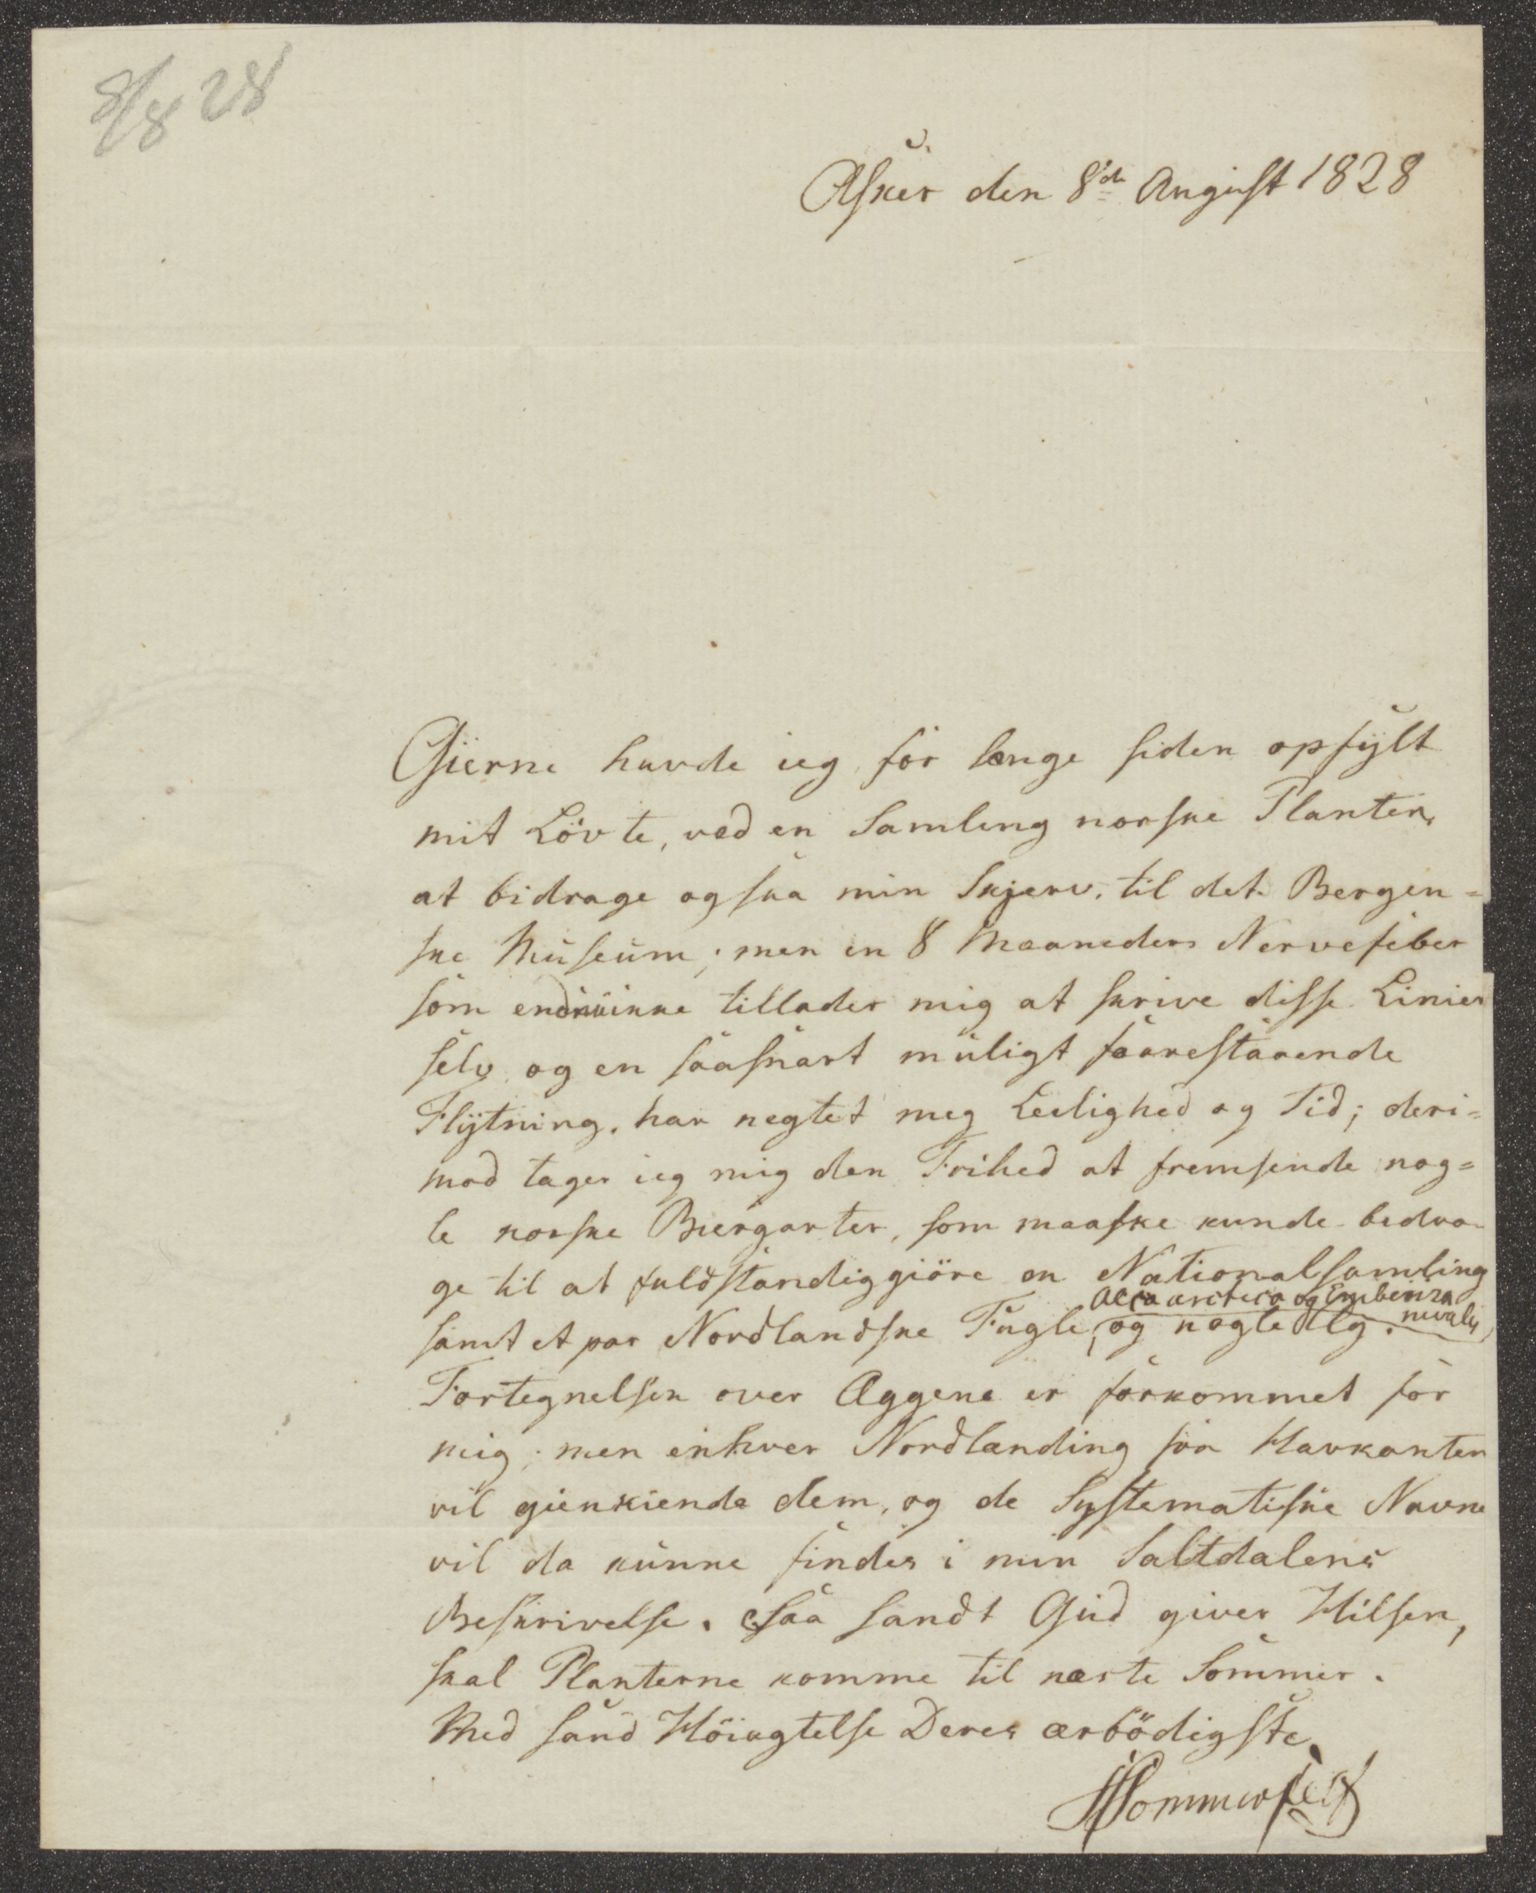 8/8 28
Asker den 8de August 1828
Gierne havde ieg for længe siden opfylt
mit Lövte, ved en Samling norske Planter,
at bidrage ogsaa min Skjerv, til det Bergen=
ske Museum; men en 8 Maaneders Nervefeber
som endnu ikke tillader mig at skrive disse Linier
selv og en saasnart muligt forestaaende
Flytning, har negtet meg Leilighed og Tid; deri=
mod tager ieg mig den Frihed at fremsende nog=
le norske Biergarter, som maaske kunde bedra-
ge til at fuldstændiggiöre en Nationalsamling
Alca arctica og Emberiza
nivalis,
samt et par Nordlandske Fugle, og nogle Æg.
Fortegnelsen over Æggene er forkommet for
mig; men enhver Nordlænding fra Havkanten
vil gienkiende dem, og de Systematiske Navne
vil da kunne findes i min Saltdalens
Beskrivelse. Saa sandt Gud giver Hilsen,
skal Planterne komme til næste Sommer.
Med sand Höiagtelse Deres ærbödigste
Sommerfelt